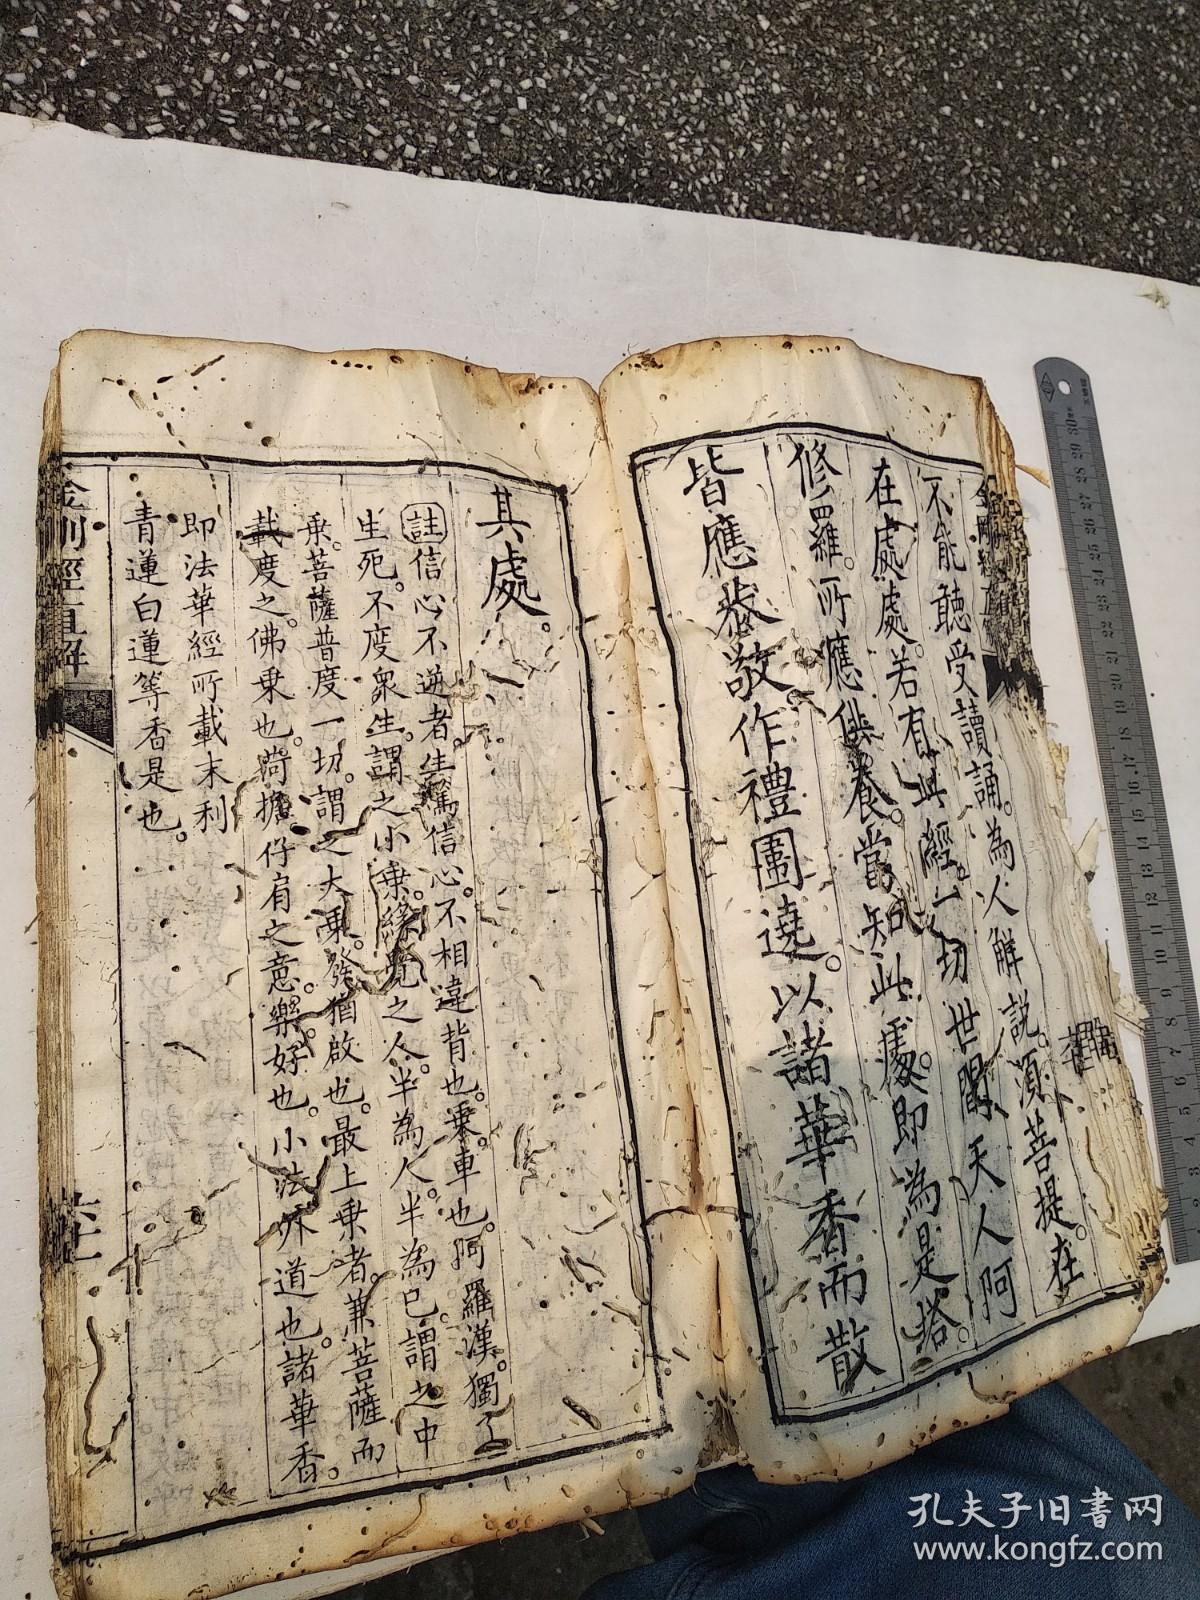 不能聽受讀誦。為人解説。須菩提。在
在處處。若有此經。一切世間天人阿
修羅。所應供養。當知此處。即為是塔。
皆應恭敬。作禮圍遶。以諸華香而散
其處。
註信心不逆者。生篤信心。不相違背也。乗。車也。阿羅漢。獨了
生死。不度衆生。謂之小乗。緣覺之人。半為人。半為己。謂之中
乗。菩薩普度一切。謂之大乗。發猶啟也。最上乗者。兼菩薩而
載度之。佛乗也。荷擔仔肩之意。樂。好也。小法。外道也。諸華香。
即法華經所載末利
青蓮白蓮等香是也。
金剛經直解
孔夫子旧書网
www.kongfz.com